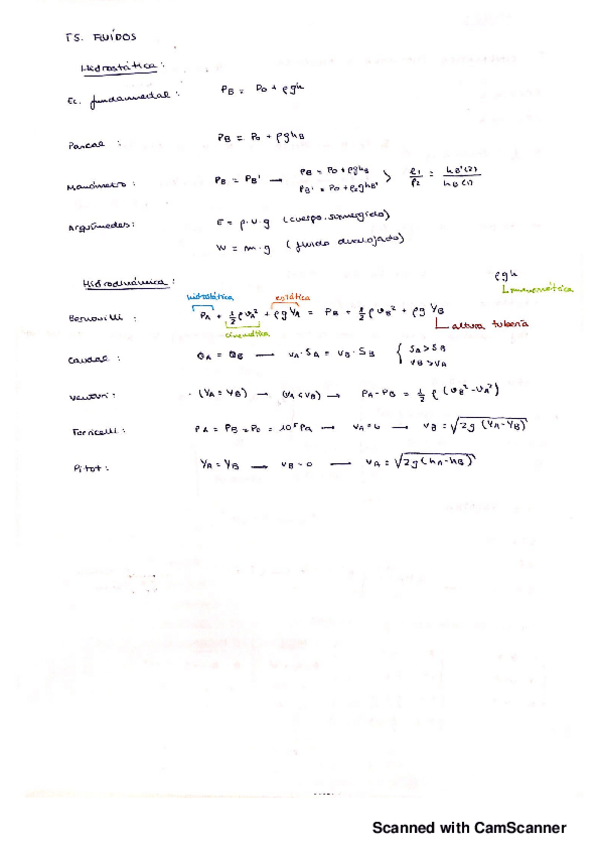 T5. FLUÍDOS
Hidrostática:
Ec. fundamental: P_B = P_0 + ρgh
Pascal: P_B = P_0 + ρgh_B
Manómetro: P_B = P_B' → P_B = P_0 + ρgh_B
P_B' = P_0 + ρ_2gh_B' ρ_1/ρ_2 = h_B'(2)/h_B(1)
Arquímedes: E = ρ·v·g (cuerpo sumergido)
W = m·g (fluido desalojado)
ρgh
Hidrodinámica: manométrica
hidrostática estática
Bernouilli: P_A + 1/2 ρv_A² + ρgY_A = P_B + 1/2 ρv_B² + ρgY_B
cinemática altura tubería
Caudal: Q_A = Q_B — v_A·S_A = v_B·S_B { S_A > S_B
v_B > v_A
Venturi: (Y_A = Y_B) → (v_A < v_B) → P_A - P_B = 1/2 ρ(v_B² - v_A²)
Torricelli: P_A = P_B = P_0 = 10⁵ Pa → v_A = 0 → v_B = √2g(Y_A - Y_B)
Pitot: Y_A = Y_B → v_B = 0 — v_A = √2g(h_A - h_B)
Scanned with CamScanner